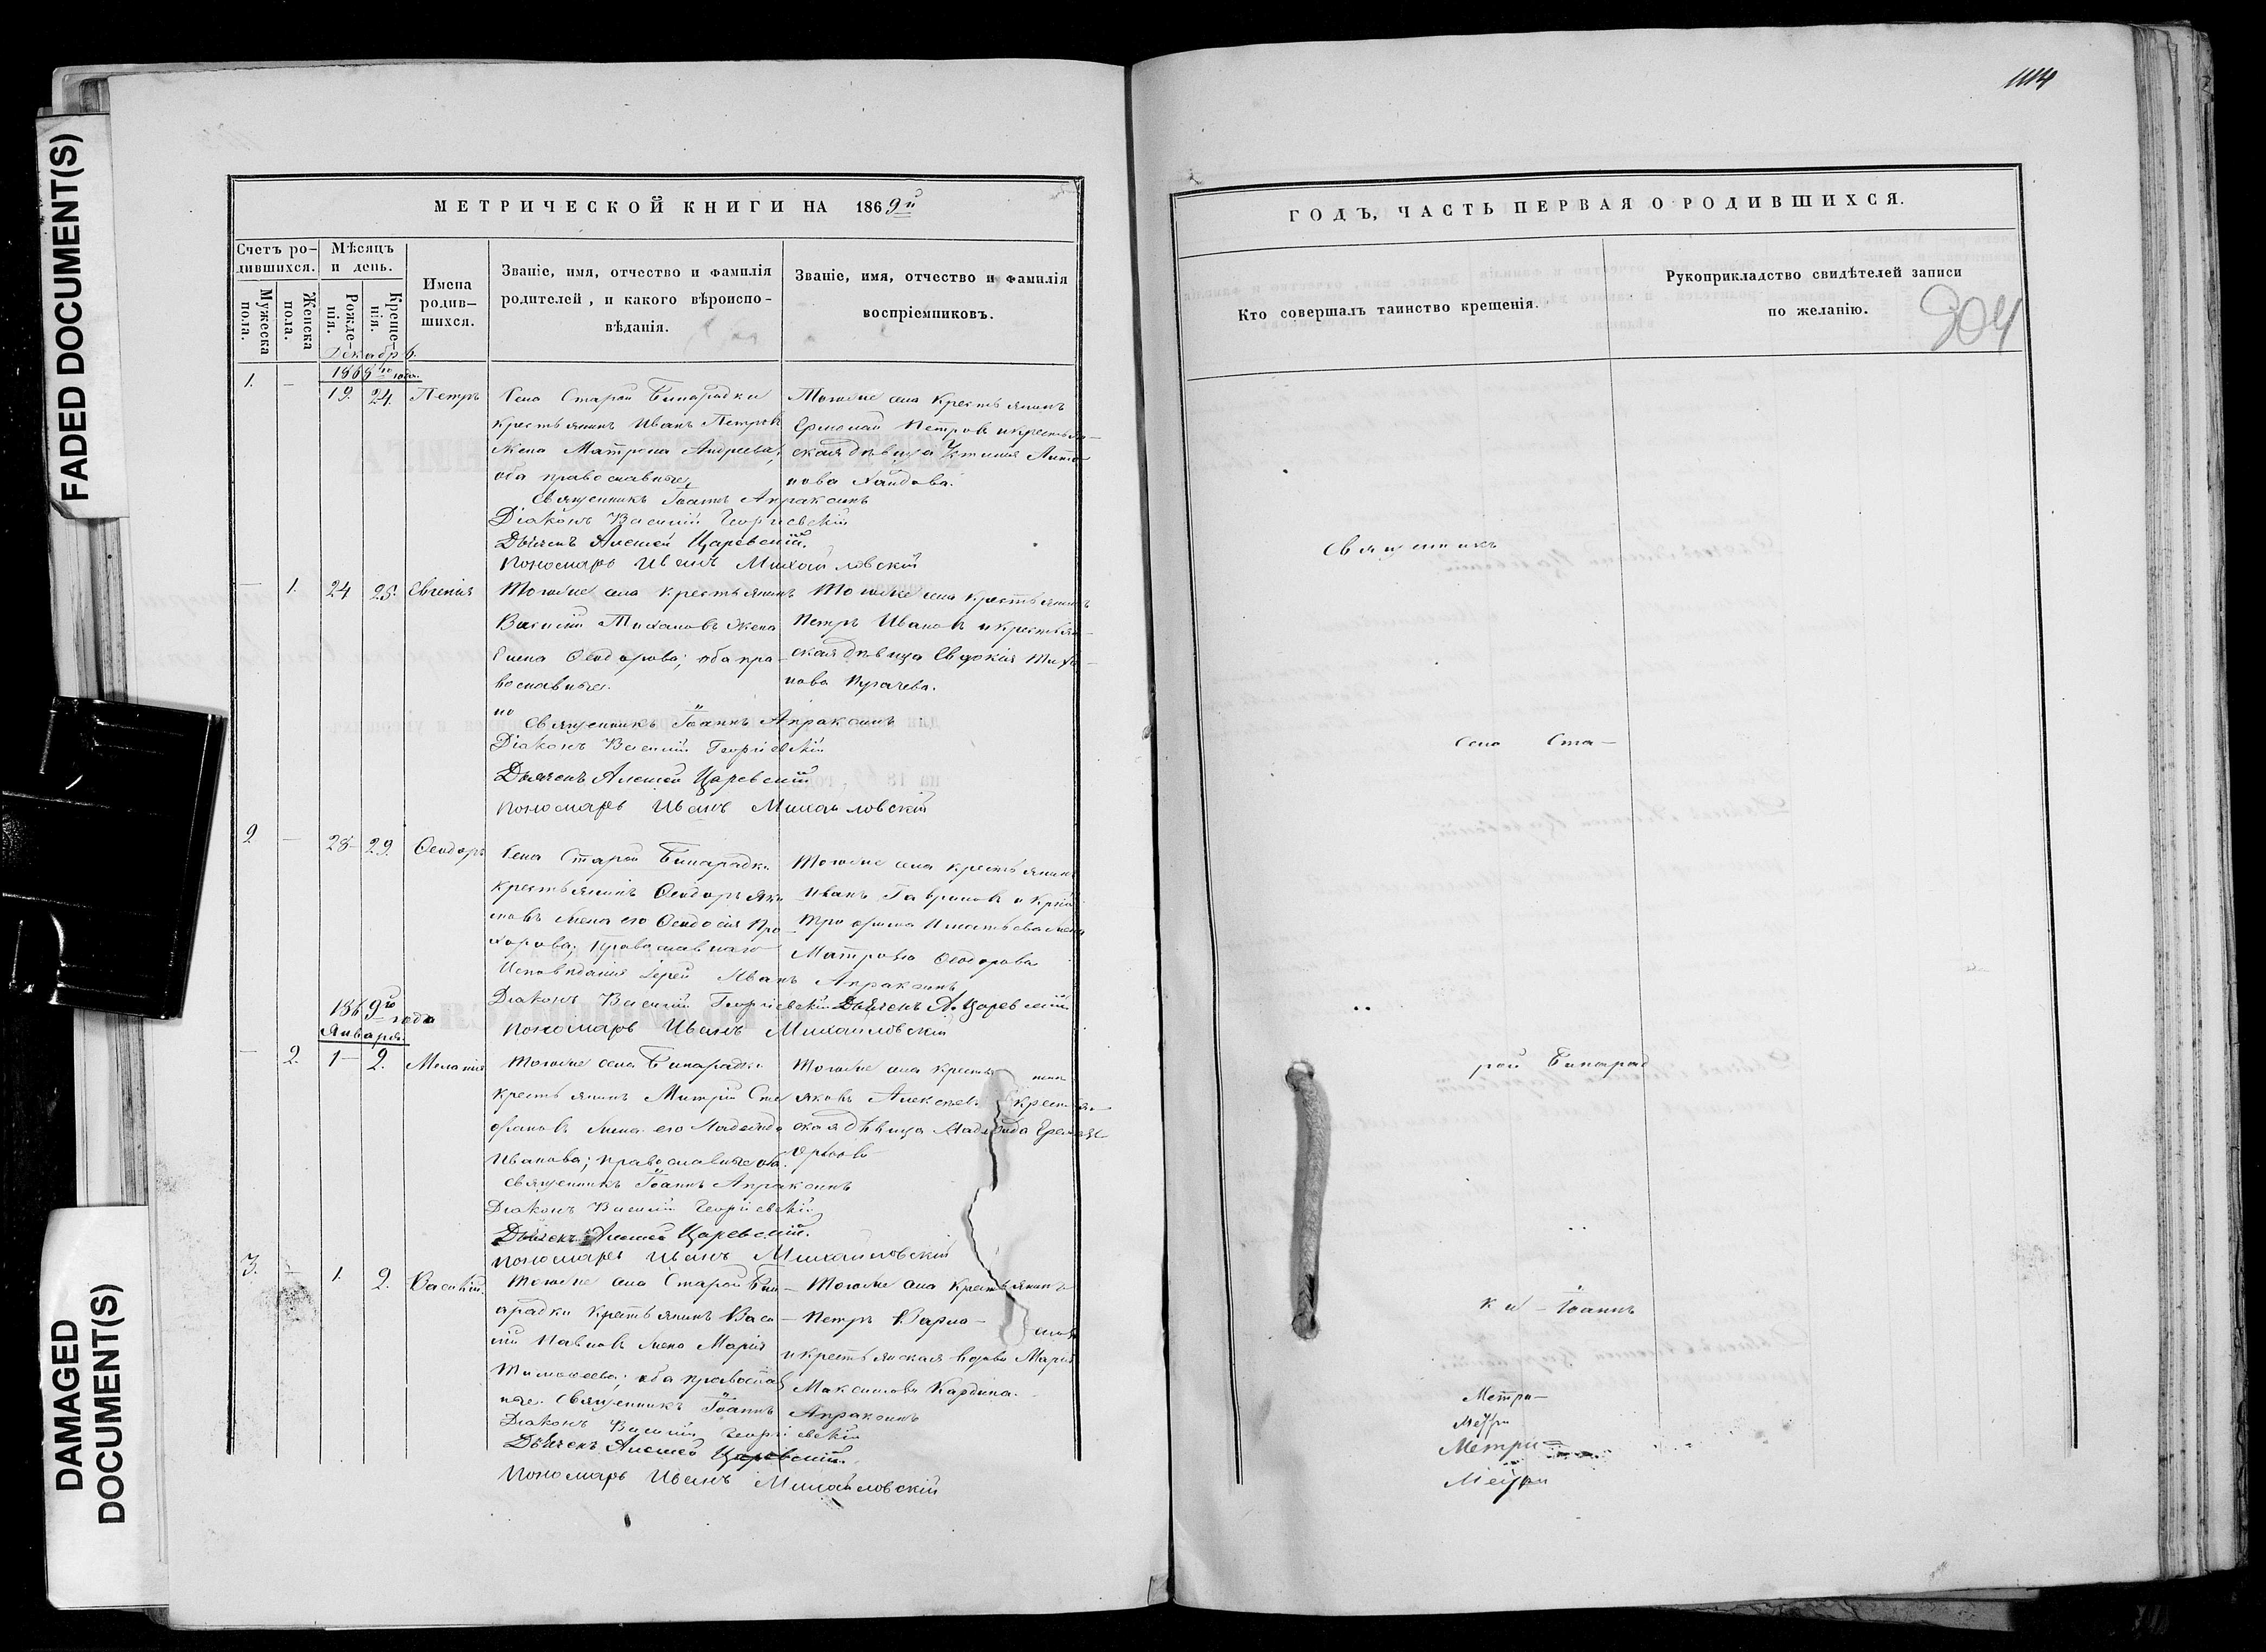 FADED DOCUMENT(S)
DAMAGED DOCUMENT(S)
МЕТРИЧЕСКОЙ КНИГИ НА 1869й
Счетъ родившихся.
Мужеска пола.
Женска пола.
Мѣсяцъ и день.
Рожденія.
Крещенія.
Имена родившихся.
Званіе, имя, отчество и фамилія
родителей, и какого вѣроиспо-
вѣданія.
Званіе, имя, отчество и фамилія
воспріемниковъ.
Декабрь.
1868го года.
1. — 19. 24. Петръ
Села Старой Бинарадки
крестьянинъ Иванъ Петровъ
жена Матрона Андреева,
оба православные
Тогоже села крестьянинъ
Ермолай Петровъ и крестьян-
ская дѣвица Устинія Анто-
нова
Священникъ Іоаннъ Апраксинъ
Діаконъ Василій Георгіевскій
Дьячекъ Алексей Царевскій.
Пономарь Иванъ Михайловскій
— 1. 24 25. Евгенія
Тогоже села крестьянинъ
Василий Тихановъ жена
Елена Ѳеодорова; оба пра-
вославные.
Тогоже села крестьянинъ
Петръ Ивановъ и крестьян-
ская дѣвица Евдокія Тиха-
нова
Священникъ Іоаннъ Апраксинъ
Діаконъ Василій Георгіевскій
Дьячекъ Алексей Царевскій
Пономарь Иванъ Михайловскій
2 — 28 29. Ѳеодоръ
Села Старой Бинарадки
крестьянинъ Ѳеодоръ Яки-
мовъ жена его Ѳеодосія Про-
хорова; православнаго
Исповѣданія
Тогоже села крестьянинъ
Иванъ Гавриловъ и
Трофима Игнатьева жена
Матрона Ѳеодорова
Іерей Иванъ Апраксинъ
Діаконъ Василій Георгіевскій Дьячекъ А. Царевскій
Пономарь Иванъ Михайловскій
1869го года
Января.
— 2. 1 2. Меланія
Тогоже села Бинарадки
крестьянинъ Митрій Сте-
фановъ жена его Надежда
Иванова; православные оба.
Тогоже села
Яковъ Алексеевъ
ская дѣвица Надежда
Священникъ Іоаннъ Апраксинъ
Діаконъ Василій Георгіевскій
Дьячекъ Алексей Царевскій.
Пономарь Иванъ Михайловскій
3. — 1. 2. Василій.
Тогоже села Старой Бин-
арадки крестьянинъ Васи-
лій Павловъ жена Марія
Тимоѳеева; оба православ-
ные.
Тогоже села крестьянинъ
Петръ
и крестьянская вдова Марія
Максимова Кардина.
Священникъ Іоаннъ Апраксинъ
Діаконъ Василій Георгіевскій
Дьячекъ Алексей Царевскій.
Пономарь Иванъ Михайловскій
1114
ГОДЪ, ЧАСТЬ ПЕРВАЯ О РОДИВШИХСЯ.
Кто совершалъ таинство крещенія.
Рукоприкладство свидѣтелей записи
по желанію.
904
Священникъ
Села Ста-
рой Бинарад
ки – Іоаннъ
Метри-
Метри
Метри=
Метри